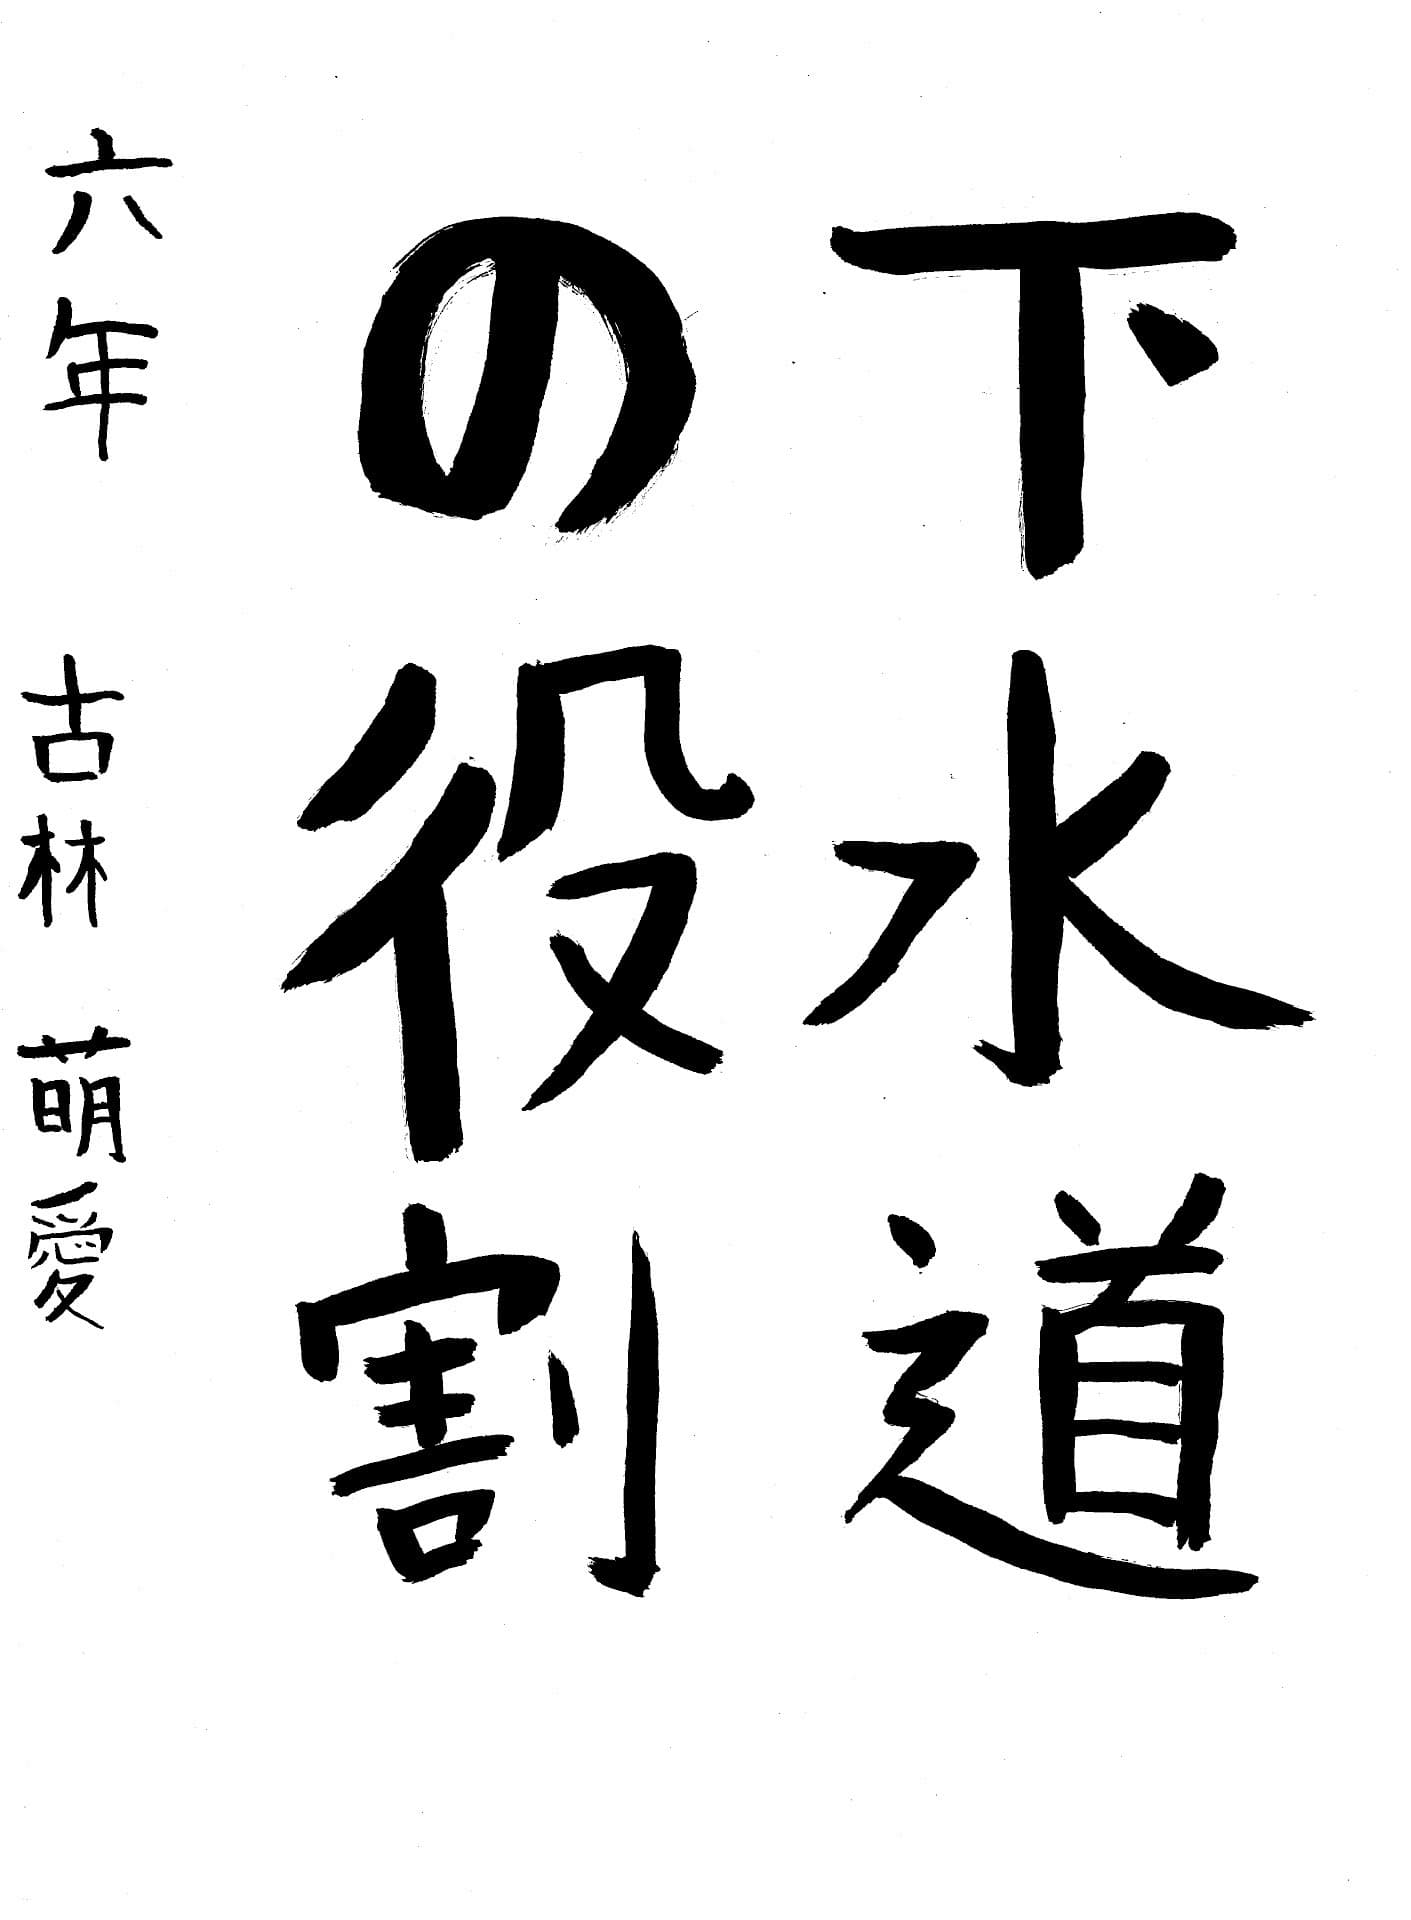 下水道
の役割
六年 古林 萌愛